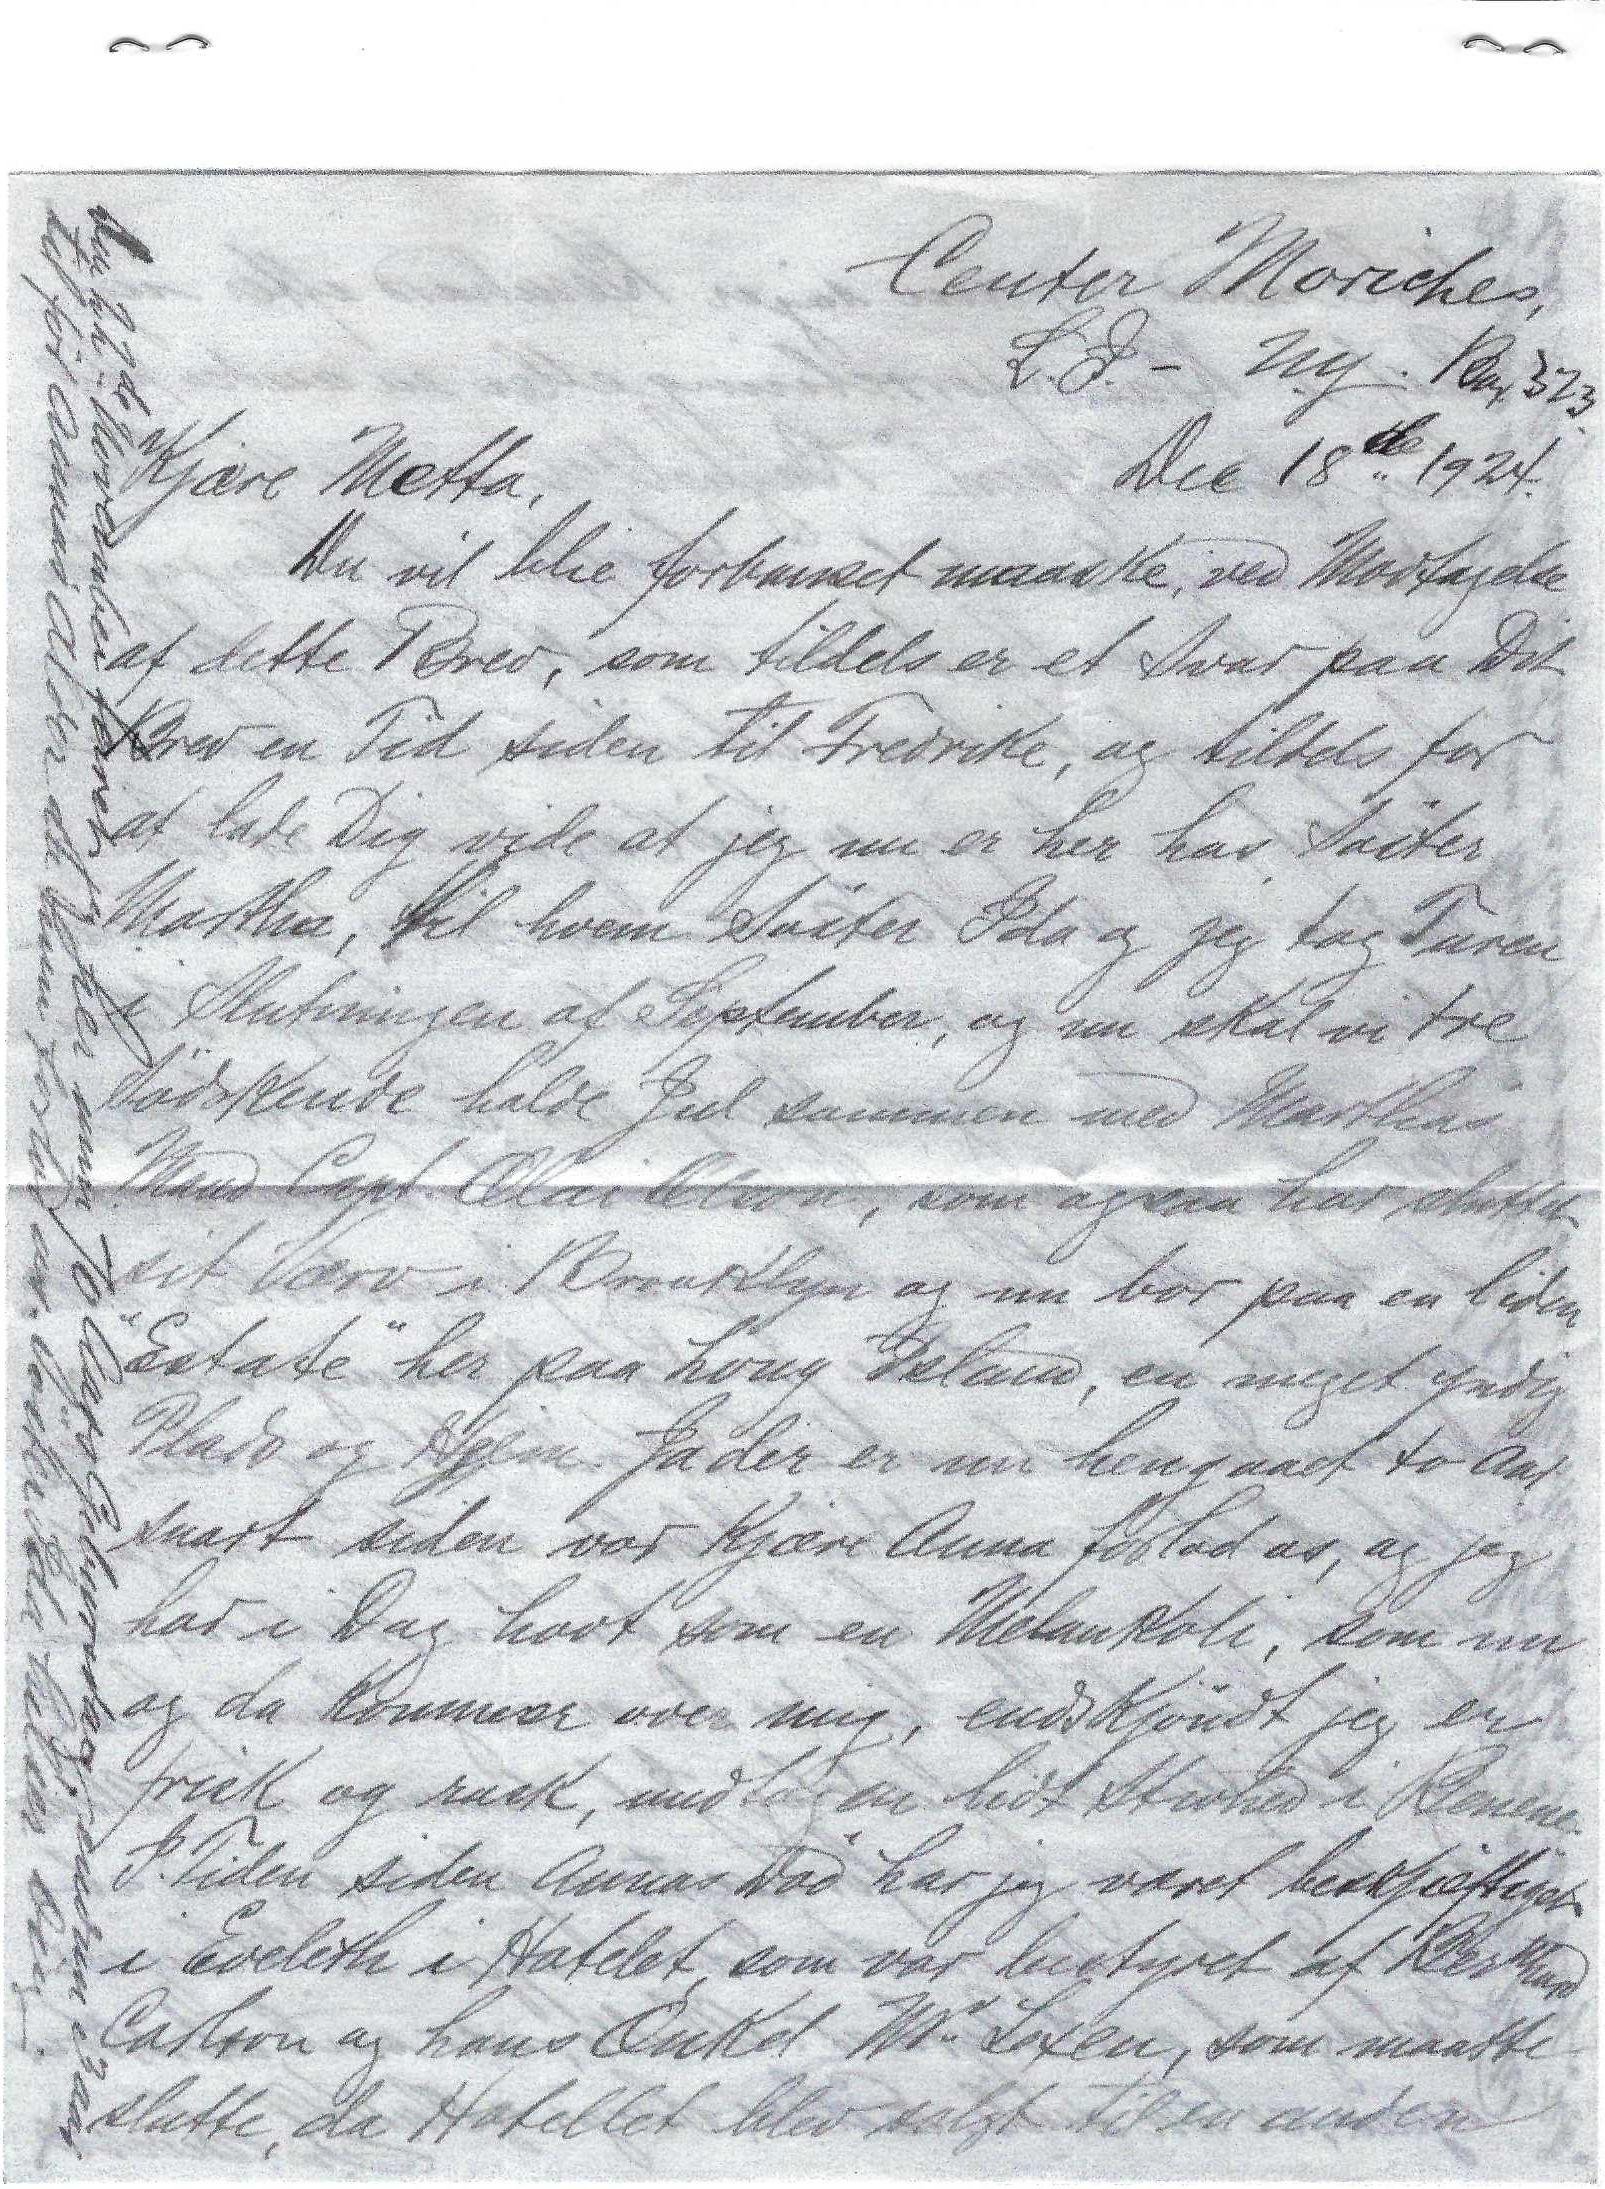 Center Moriches,
L.I. - N.Y. Box 323.
Dec 18de 1924.
Kjære Metta,
Du vil blie forbauset maaske, ved Modtagelse
af dette Brev, som tildels er et Svar paa Dit
Brev en Tid siden til Fredrike, og tildels for
at lade Dig vide at jeg nu er her hos Søster
Martha, til hvem Søster Ida og jeg tog Turen
i Slutningen af September, og nu skal vi tre
Södskende holde Jul sammen med Marthas
Mand Capt. Olai Olson, som ogsaa har sluttet
sit Værv i Brooklyn og nu bor paa en liden
"Estate" her paa Long Island, en meget yndig
Plads og Hjem. Ja der er nu hengaaet to Aar
snart siden vor Kjære Anna forlod os, og jeg
har i Dag havt som en Melankoli, som nu
og da kommer over mig, endskjöndt jeg er
frisk og rask, undtagen lidt Stivhed i Benene.
I Tiden siden Annas Död har jeg været beskjæftiget
i Eveleth i Hotelet, som var bestyret af
Carlson og hans Onkel Mr. Loxen, som maatte
slutte, da Hotellet blev solgt til en anden
Den 24de November forret min 70 Aars Geburtsdag,
Ida hilser Dig.